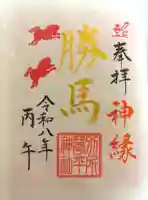 奉拝
神縁
勝馬
令和八年
丙午